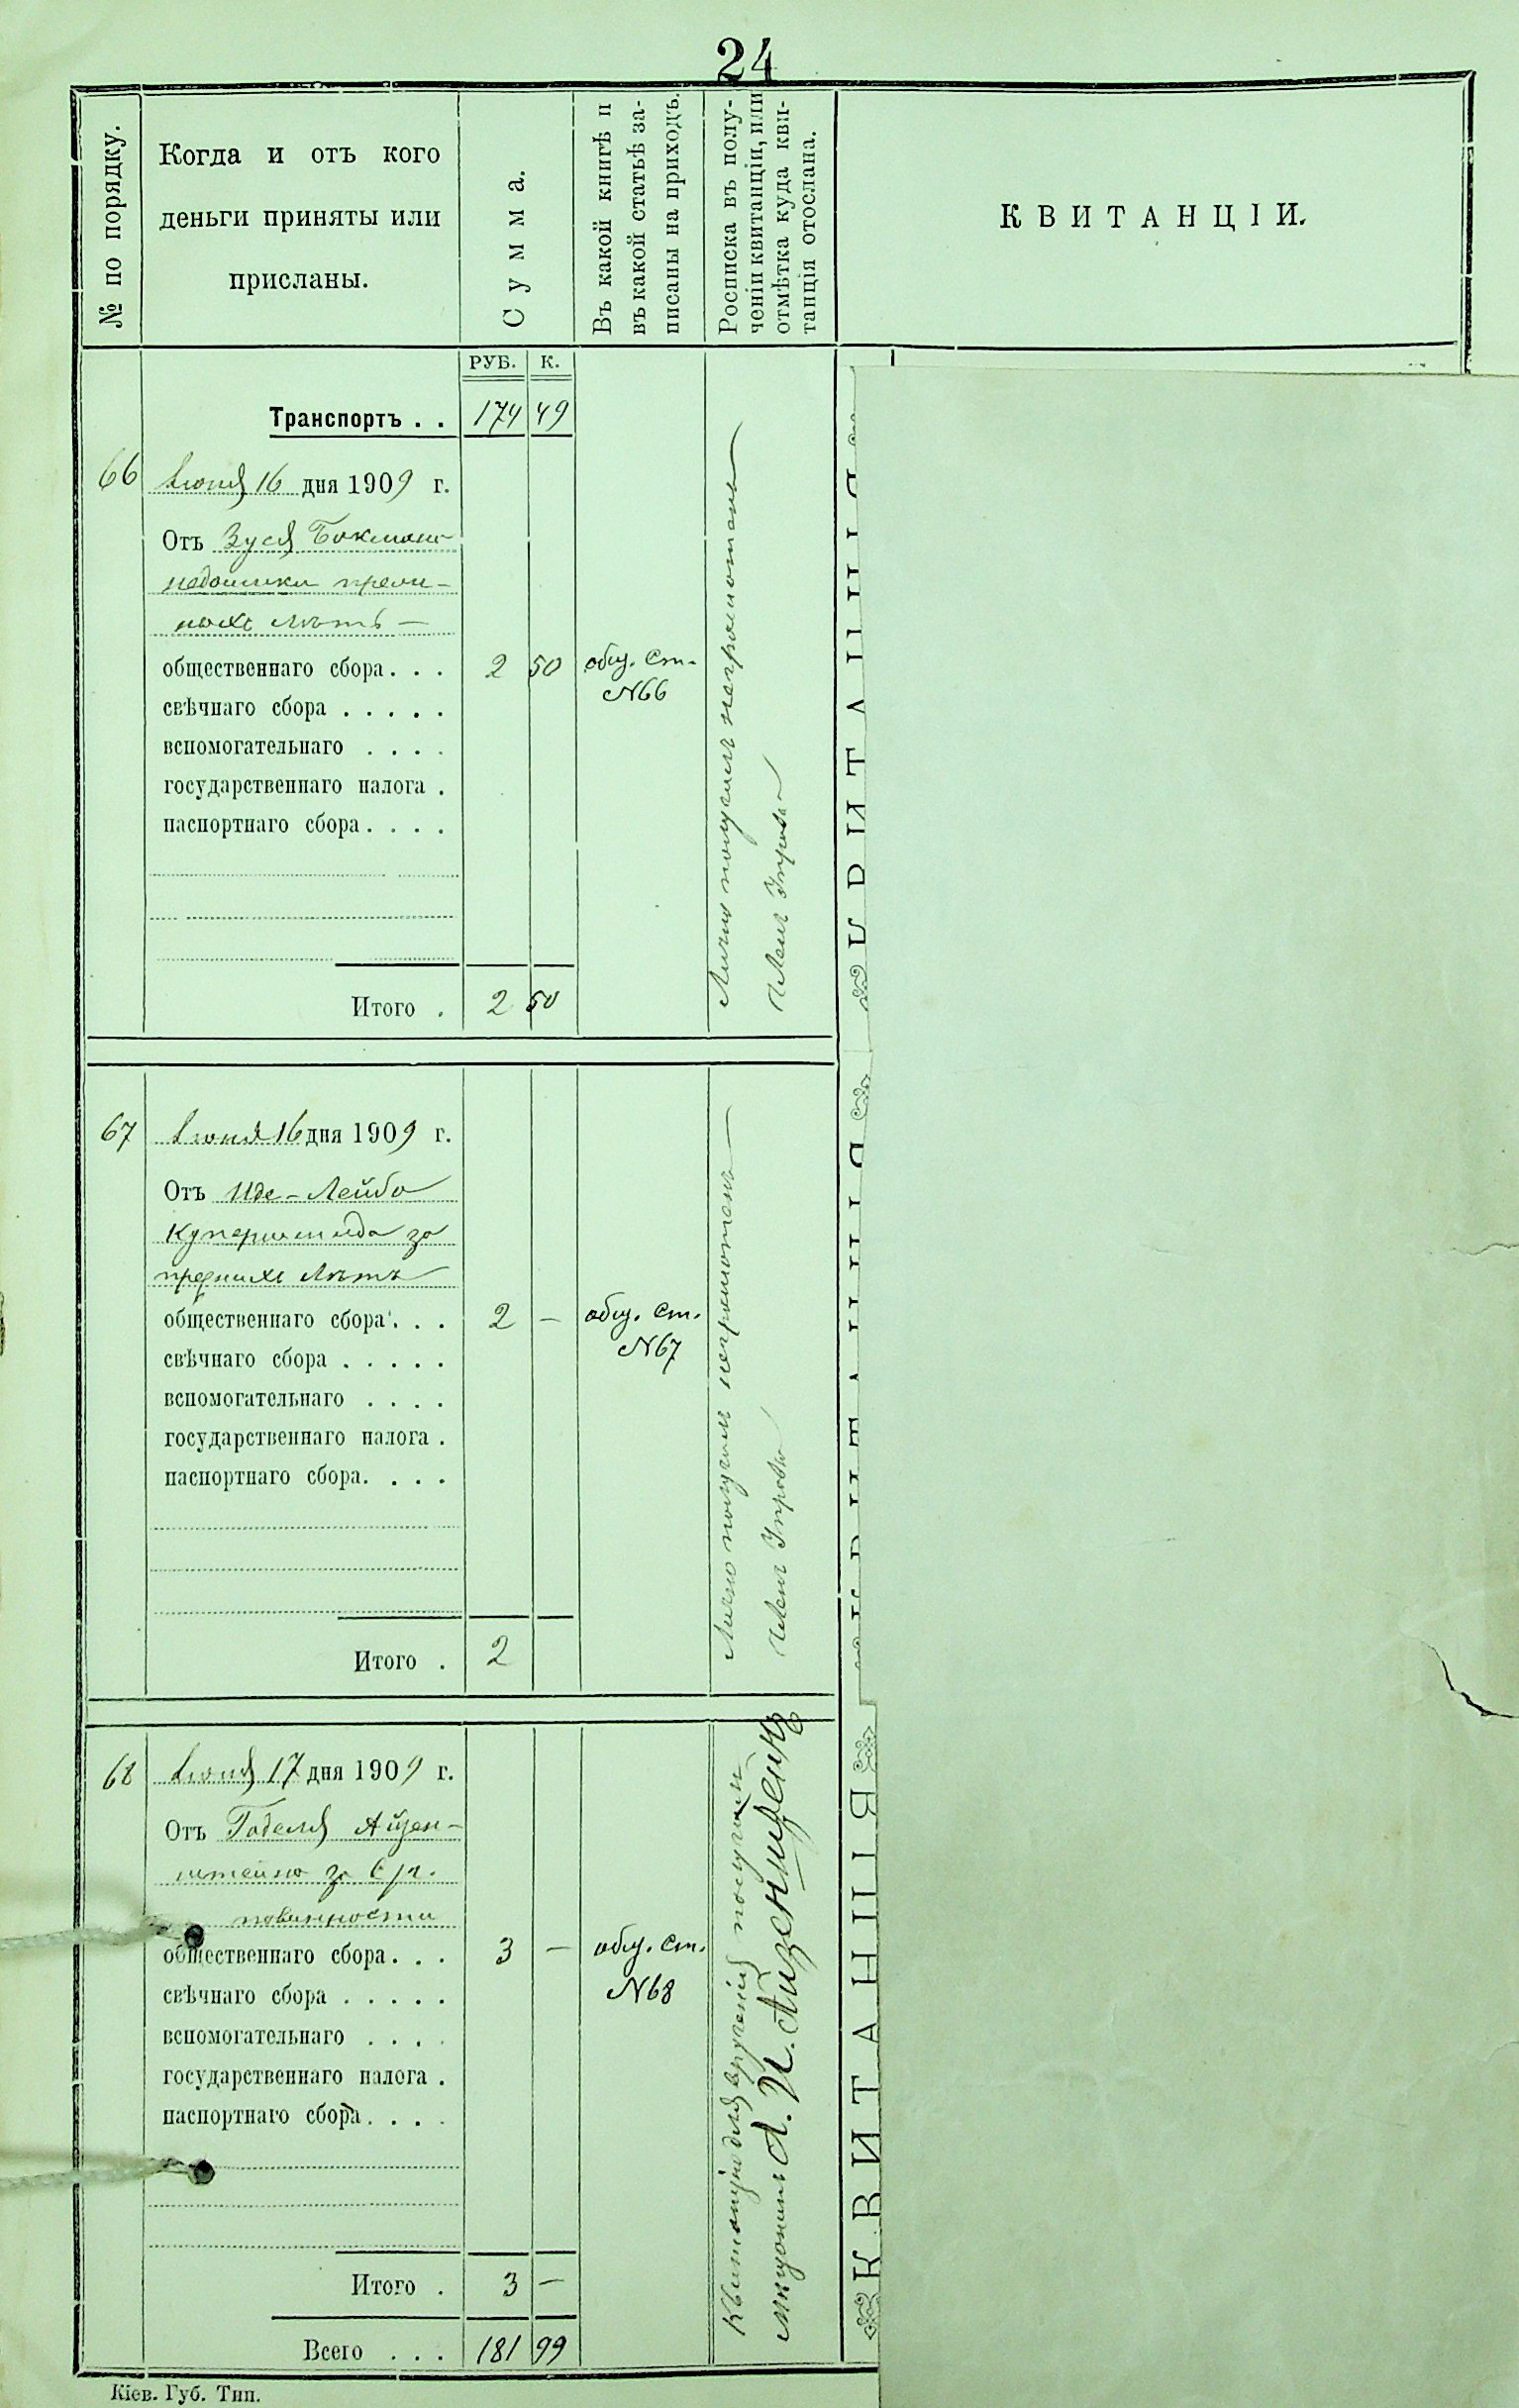 24
№ по порядку.
Когда и отъ кого
деньги приняты или
присланы.
Сумма.
Въ какой книгѣ и
въ какой статьѣ за-
писаны на приходъ.
Росписка въ полу-
ченіи квитанціи, или
отмѣтка куда кви-
танція отослана.
КВИТАНЦІИ.
РУБ. К.
Транспортъ . . 174 49
66 Іюня 16 дня 1909 г.
Отъ Зуся Бокмана
недоимки
лѣтъ —
общественнаго сбора . . . 2 50 общ. ст.
№66
свѣчнаго сбора . . . . .
вспомогательнаго . . . .
государственнаго налога .
паспортнаго сбора . . . .
Итого . 2 50
Лично получилъ неграмотный
Членъ Управы
КВИТАНЦІЯ
67 Іюня 16 дня 1909 г.
Отъ Иде-Лейба
Купершмида за
прежнихъ лѣтъ
общественнаго сбора . . . 2 — общ. ст.
№67
свѣчнаго сбора . . . . .
вспомогательнаго . . . .
государственнаго налога .
паспортнаго сбора . . . .
Итого . 2
Лично получилъ неграмотенъ
Членъ Управы
КВИТАНЦІЯ
68 Іюня 17 дня 1909 г.
Отъ Годеля Айзен-
штейна за
повинности
общественнаго сбора . . . 3 — общ. ст.
№68
свѣчнаго сбора . . . . .
вспомогательнаго . . . .
государственнаго налога .
паспортнаго сбора . . . .
Итого . 3 —
Всего . . . 181 99
Квитанцію для врученія получилъ
КВИТАНЦІЯ
Кіев. Губ. Тип.